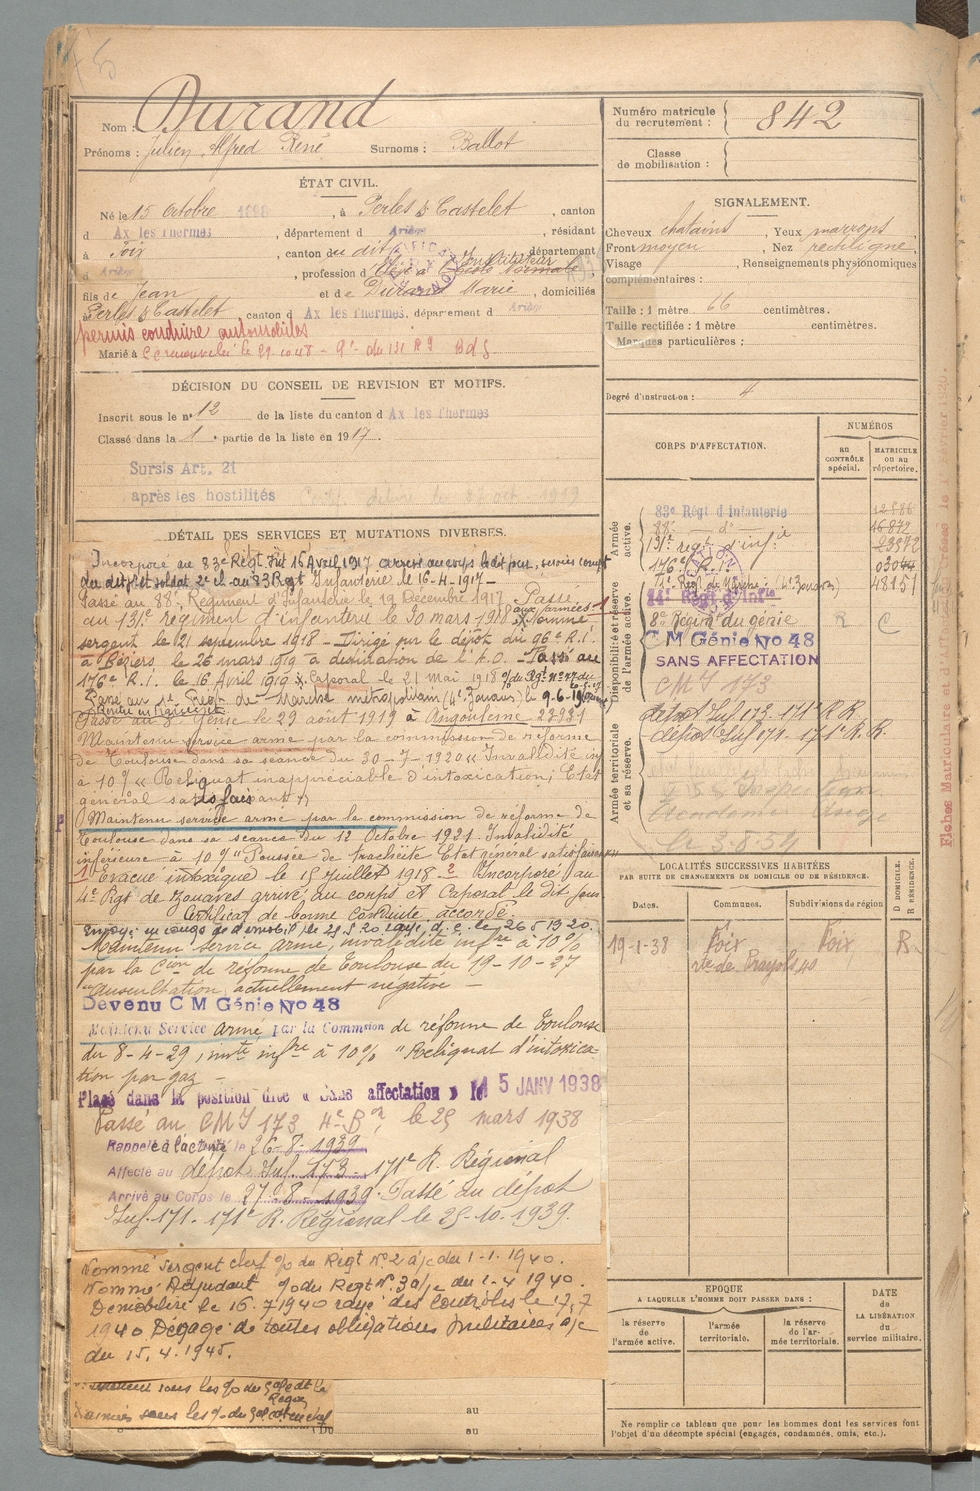 Nom : Durand
Prénoms : Julien Alfred René Surnoms : Ballot
ÉTAT CIVIL.
Né le 15 octobre 1898, à Perles & Castelet, canton
d Ax les Thermes, département d Ariège, résidant
à Foix, canton du dit, département
d Ariège, profession d' Instituteur Elève à l'Ecole Normale
fils de Jean et de Durand Marie, domiciliés
à Perles & Castelet, canton d Ax les Thermes, département d Ariège
permis conduire automobiles
Marié à
DÉCISION DU CONSEIL DE REVISION ET MOTIFS.
Inscrit sous le n° 12 de la liste du canton d Ax les Thermes
Classé dans la 1 e partie de la liste en 1917.
Sursis Art. 21
après les hostilités
DÉTAIL DES SERVICES ET MUTATIONS DIVERSES.
Incorporé au 83e Régt Inf 16 Avril 1917 arrivé au corps le dit jour
du dit et soldat 2e cl au 83 Regt Infanterie le 16-4-1917-
Passé au 88e Régiment d'Infanterie le 19 Décembre 1917. Passé
au 131e régiment d'infanterie le 30 mars 1918 aux armées. Nommé
sergent le 21 septembre 1918 - Dirigé sur le dépôt du 96e R.I.
à Béziers le 26 mars 1919 à destination de l'A.O. - Passé au
176e R.I. le 16 Avril 1919 Caporal le 21 mai 1918
Passé au 1er Rég. de Marche métropolitain (4e Zouaves) le 9-6-19
Passé au 8e Génie le 29 août 1919 à Angoulême
Maintenu service armé par la commission de réforme
de Toulouse dans sa séance du 30-7-1920 "Invalidité inf
à 10% "Reliquat inappréciable d'intoxication; Etat
général satisfaisant"
Maintenu service armé par la commission de réforme de
Toulouse dans sa séance du 12 Octobre 1921. Invalidité
inférieure à 10% "Poussée de trachéite Etat général satisfaisant"
1 Evacué intoxiqué le 15 Juillet 1918 2 Incorporé au
4e Rgt de Zouaves arrivé au corps et Caporal le dit jour
Certificat de bonne conduite accordé.
Maintenu service armé, invalidité infre à 10%
par la Cion de réforme de Toulouse du 19-10-27
"auscultation actuellement négative" -
Devenu C M Génie No 48
Maintenu Service armé par la Commsion de réforme de Toulouse
du 8-4-29, invté infre à 10% "Reliquat d'intoxica-
tion par gaz -
Placé dans la position dite « Sans affectation » le 15 JANV 1938
Passé au CMI 173 4e Bon, le 25 mars 1938
Rappelé à l'activité le 26-8-1939
Affecté au dépôt Inf. 173 - 171e R. Régional
Arrivé au Corps le 27-8-1939. Passé au dépôt
Inf. 171. 171e R. Régional le 25-10-1939.
Nommé Sergent chef o/o du Régt N° 2 a/c du 1-1-1940.
Nommé Adjudant o/o du Regt N° 3 a/c du 1-4 1940.
Démobilisé le 16.7.1940 rayé des contrôles le 17.7
1940 Dégagé de toutes obligations militaires a/c
du 15.4.1945.
Du au
au
Numéro matricule du recrutement : 842
Classe de mobilisation :
SIGNALEMENT.
Cheveux chatains, Yeux marrons,
Front moyen, Nez rectiligne,
Visage , Renseignements physionomiques
complémentaires :
Taille : 1 mètre 66 centimètres.
Taille rectifiée : 1 mètre centimètres.
Marques particulières :
Degré d'instruction : 4
CORPS D'AFFECTATION.
NUMÉROS
AU CONTRÔLE spécial.
MATRICULE OU AU répertoire.
Armée active.
Disponibilité et réserve de l'armée active.
Armée territoriale et sa réserve.
83e Régt d'infanterie
88e - d° - 16872
131e régt d'infie 23572
176e R.I.
1er Rég. de Marche (4e Zouaves) 48151
8e Régim du génie R C
C M Génie No 48
SANS AFFECTATION
CMI 173
dépôt Inf 173-171e R.R.
dépôt Inf 171-171e R.R.
LOCALITÉS SUCCESSIVES HABITÉES
PAR SUITE DE CHANGEMENTS DE DOMICILE OU DE RÉSIDENCE.
Dates. Communes. Subdivisions de région
D DOMICILE. R RÉSIDENCE.
19-1-38 Foix Foix R
EPOQUE
A LAQUELLE L'HOMME DOIT PASSER DANS :
la réserve de l'armée active.
l'armée territoriale.
la réserve de l'armée territoriale.
DATE de LA LIBÉRATION du service militaire.
Ne remplir ce tableau que pour les hommes dont les services font
l'objet d'un décompte spécial (engagés, condamnés, omis, etc.).